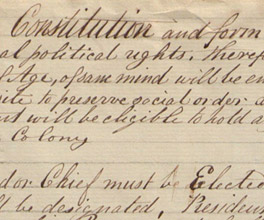 Constitution and form
al political rights. Theref
Age, of sane mind will be en
ite to preserve social order a
ut will be eligible to hold a
Colony
d or Chief must be Elected
ll be designated, Presiden